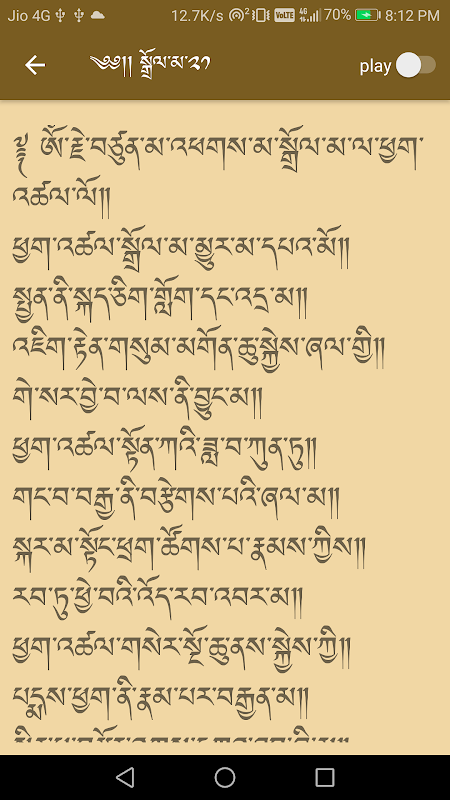 Jio 4G 12.7K/s 2 VoLTE 4G 70% 8:12 PM
༄༅།། སྒྲོལ་མ་༢༡
play
༈ ༀ་རྗེ་བཙུན་མ་འཕགས་མ་སྒྲོལ་མ་ལ་ཕྱག་
འཚལ་ལོ།།
ཕྱག་འཚལ་སྒྲོལ་མ་མྱུར་མ་དཔའ་མོ།།
སྤྱན་ནི་སྐད་ཅིག་གློག་དང་འདྲ་མ།།
འཇིག་རྟེན་གསུམ་མགོན་ཆུ་སྐྱེས་ཞལ་གྱི།།
གེ་སར་བྱེ་བ་ལས་ནི་བྱུང་མ།།
ཕྱག་འཚལ་སྟོན་ཀའི་ཟླ་བ་ཀུན་ཏུ།།
གང་བ་བརྒྱ་ནི་བརྩེགས་པའི་ཞལ་མ།།
སྐར་མ་སྟོང་ཕྲག་ཚོགས་པ་རྣམས་ཀྱིས།།
རབ་ཏུ་ཕྱེ་བའི་འོད་རབ་འབར་མ།།
ཕྱག་འཚལ་གསེར་སྔོ་ཆུ་ནས་སྐྱེས་ཀྱི།།
པདྨས་ཕྱག་ནི་རྣམ་པར་བརྒྱན་མ།།